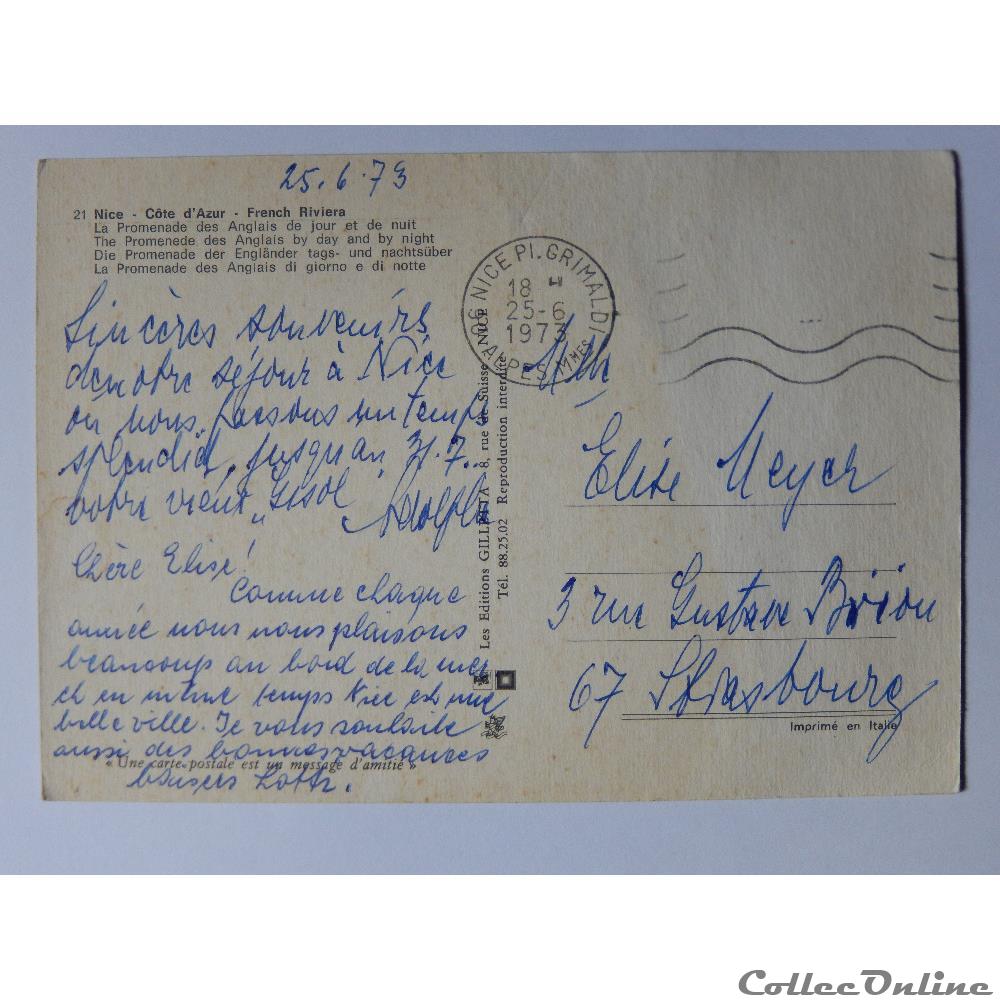 25.6.73
21 Nice - Côte d'Azur - French Riviera
La Promenade des Anglais de jour et de nuit
The Promenede des Anglais by day and by night
Die Promenade der Engländer tags- und nachtsüber
La Promenade des Anglais di giorno e di notte
Sincères souvenirs
de notre séjour à Nice
ou nous passons un temps
splendid, jusqu'au 31.7.
votre vieux Adolphe
Chère Elise!
Comme chaque
année nous nous plaisons
beaucoup au bord de la mer
et en même temps Nice est une
belle ville. Je vous souhaite
aussi des bonnes vacances
« Une carte postale est un message d'amitié »
baisers
Les Editions GILLETTA - 8, rue de Suisse - NICE
Tél. 88.25.02 Reproduction interdite
06 NICE PL. GRIMALDI
18 H
25-6
1973
ALPES MMES
Mlle
Elise Meyer
3 rue Gustave Brion
67 Strasbourg
Imprimé en Italie
CollecOnline